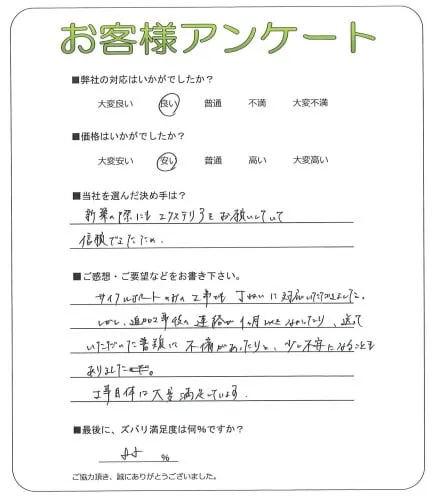 お客様アンケート
■弊社の対応はいかがでしたか？
大変良い 良い 普通 不満 大変不満
■価格はいかがでしたか？
大変安い 安い 普通 高い 大変高い
■当社を選んだ決め手は？
新築の際にも エクステリアを お願いしていて
信頼できたため.
■ご感想・ご要望などをお書き下さい。
サイクルポートのみの工事でも 丁ねいに対応いただきました。
しかし、追加工事後の連絡が1ヶ月以上なかったり、送って
いただいた書類に 不備があったりと、少し不安になることも
ありました。
工事自体は大変満足しています.
■最後に、ズバリ満足度は何%ですか？
%
ご協力頂き、誠にありがとうございました。